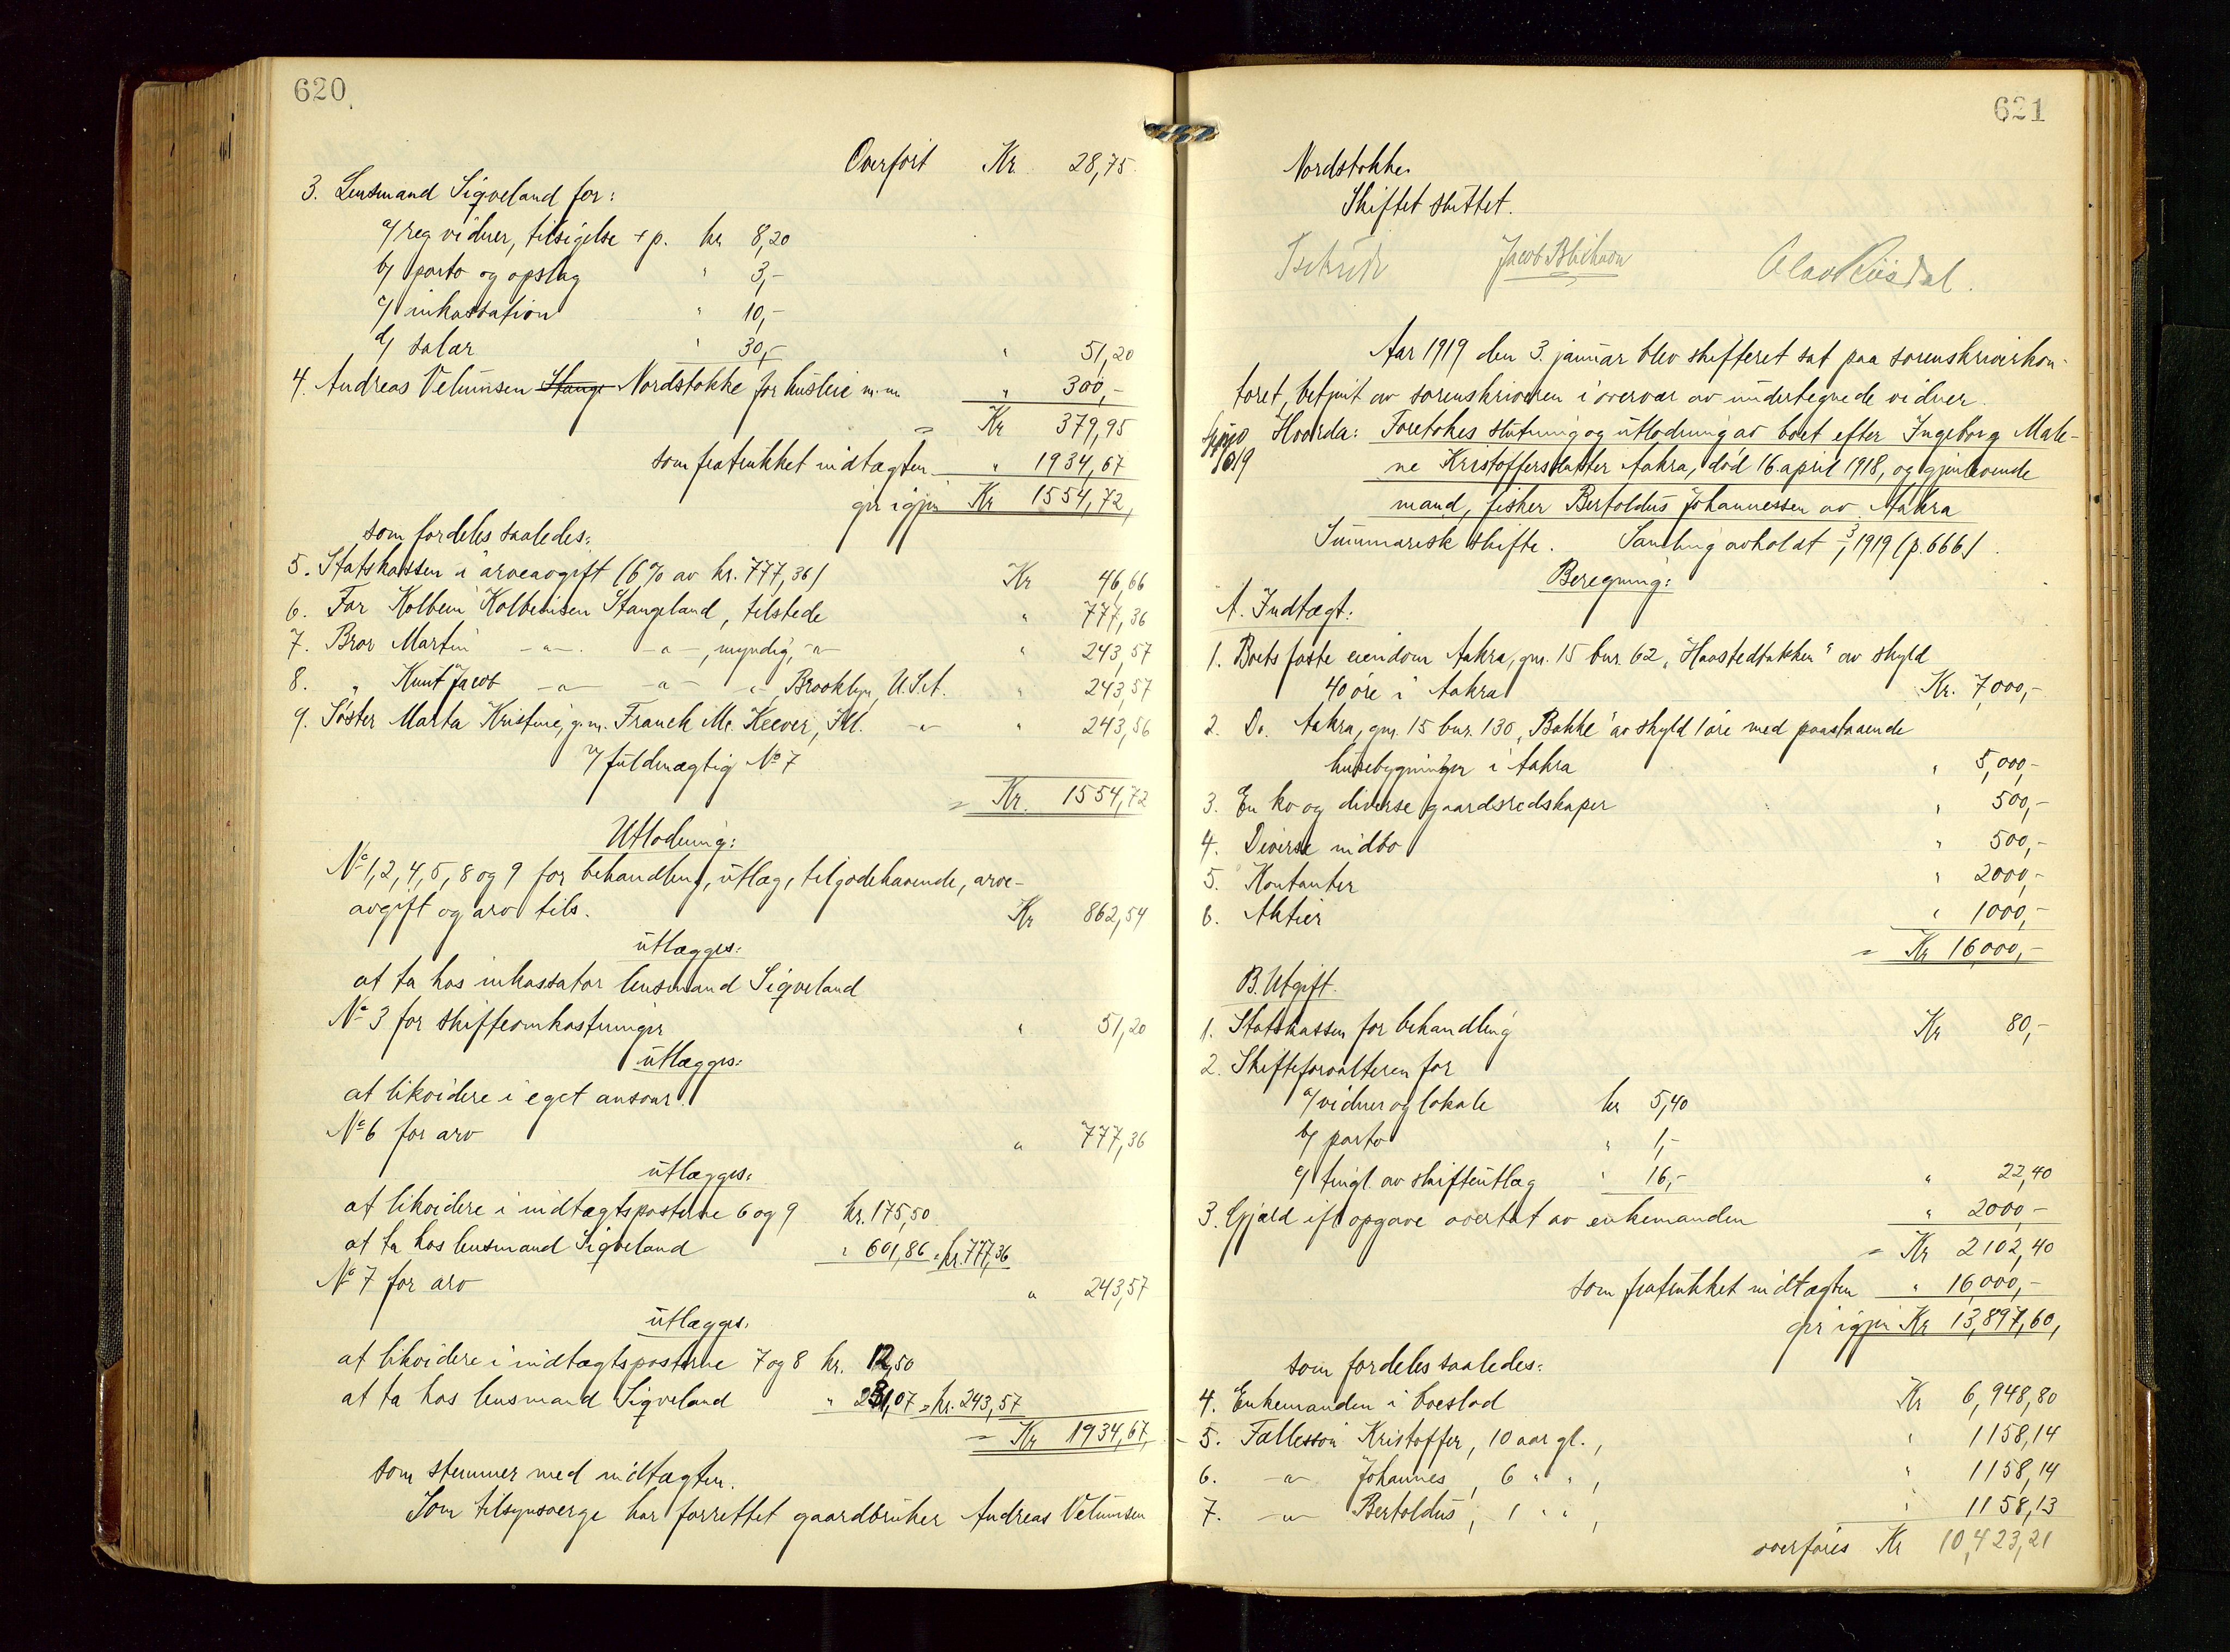 620
Overført Kr. 28,75
3. Lensmand Sigveland for:
a/ reg. vidner, tilsigelse + p. kr 8,20
b/ porto og opslag " 3,-
c/ inkassation " 10,-
d/ salær " 30,- " 51,20
4. Andreas Velumsen Stange Nordstokke for husleie m.m. " 300,-
= Kr 379,95
som fratrukket indtægten " 1934,67
gir igjen Kr 1554,72,
som fordeles saaledes:
5. Statskassen i arveavgift (6% av kr. 777,36) Kr 46,66
6. Far Kolbein Kolbeinsen Stangeland, tilstede " 777,36
7. Bror Martin -"- -"-, myndig, -"- " 243,57
8. " Knut Jacob -"- -"- " Brooklyn, U.S.A. " 243,57
9. Søster Marta Kristine, g.m. Franck Mc. Keever, Ill. -"- " 243,56
v/ fuldmægtig No 7
= Kr. 1554,72
Utlodning:
No 1, 2, 4, 5, 8 og 9 for behandling, utlæg, tilgodehavende, arve-
avgift og arv tils. Kr 862,54
utlægges:
at ta hos inkassator lensmand Sigveland
No 3 for skifteomkostninger " 51,20
utlægges:
at likvidere i eget ansvar.
No 6 for arv " 777,36
utlægges:
at likvidere i indtægtsposterne 6 og 9 kr. 175,50
at ta hos lensmand Sigveland " 601,86 = kr. 777,36
No 7 for arv " 243,57
utlægges:
at likvidere i indtægtsposterne 7 og 8 kr. 12,50
at ta hos lensmand Sigveland " 231,07 = kr. 243,57
= Kr 1934,67,
som stemmer med indtægten.
Som tilsynsverge har forrettet gaardbruker Andreas Velumsen
621
Nordstokke.
Skiftet sluttet.
Olav
Aar 1919 den 3. januar blev skifteret sat paa sorenskriverkon-
toret, betjent av sorenskriveren i overvær av undertegnede vidner.
Hvorda: Foretokes slutning og utlodning av boet efter Ingeborg Male-
1919
ne Kristoffersdatter Aakra, død 16. april 1918, og gjenlevende
mand, fisker Bertoldus Johannessen av Aakra
Summarisk skifte. Samling avholdt 3/1 1919 (p. 666)
Beregning:
A. Indtægt:
1. Boets faste eiendom Aakra, gnr. 15 bnr. 62, "Haastedbakken" av skyld
40 øre i Aakra Kr. 7,000,-
2. Do. Aakra, gnr. 15 bnr. 130, "Bakke" av skyld 1 øre med paastaaende
husebygninger i Aakra " 5,000,-
3. En ko og diverse gaardsredskaper " 500,-
4. Diverse indbo " 500,-
5. Kontanter " 2000,-
6. Aktier " 1000,-
= Kr 16000,-
B. Utgift.
1. Statskassen for behandling Kr 80,-
2. Skifteforvalteren for
a/ vidner og lokale kr 5,40
b/ porto " 1,-
c/ tingl. av skifteutlæg " 16,- " 22,40
3. Gjæld ifl. opgave overtat av enkemanden " 2000,-
= Kr 2102,40
som fratrukket indtægten " 16000,-
gir igjen Kr 13,897,60,
som fordeles saaledes:
4. Enkemanden i boeslod Kr 6,948,80
5. Fællessøn Kristoffer, 10 aar gl., " 1158,14
6. -"- Johannes, 6 " ", " 1158,14
7. -"- Bertoldus, 1 " ", " 1158,13
overføres Kr 10,423,21